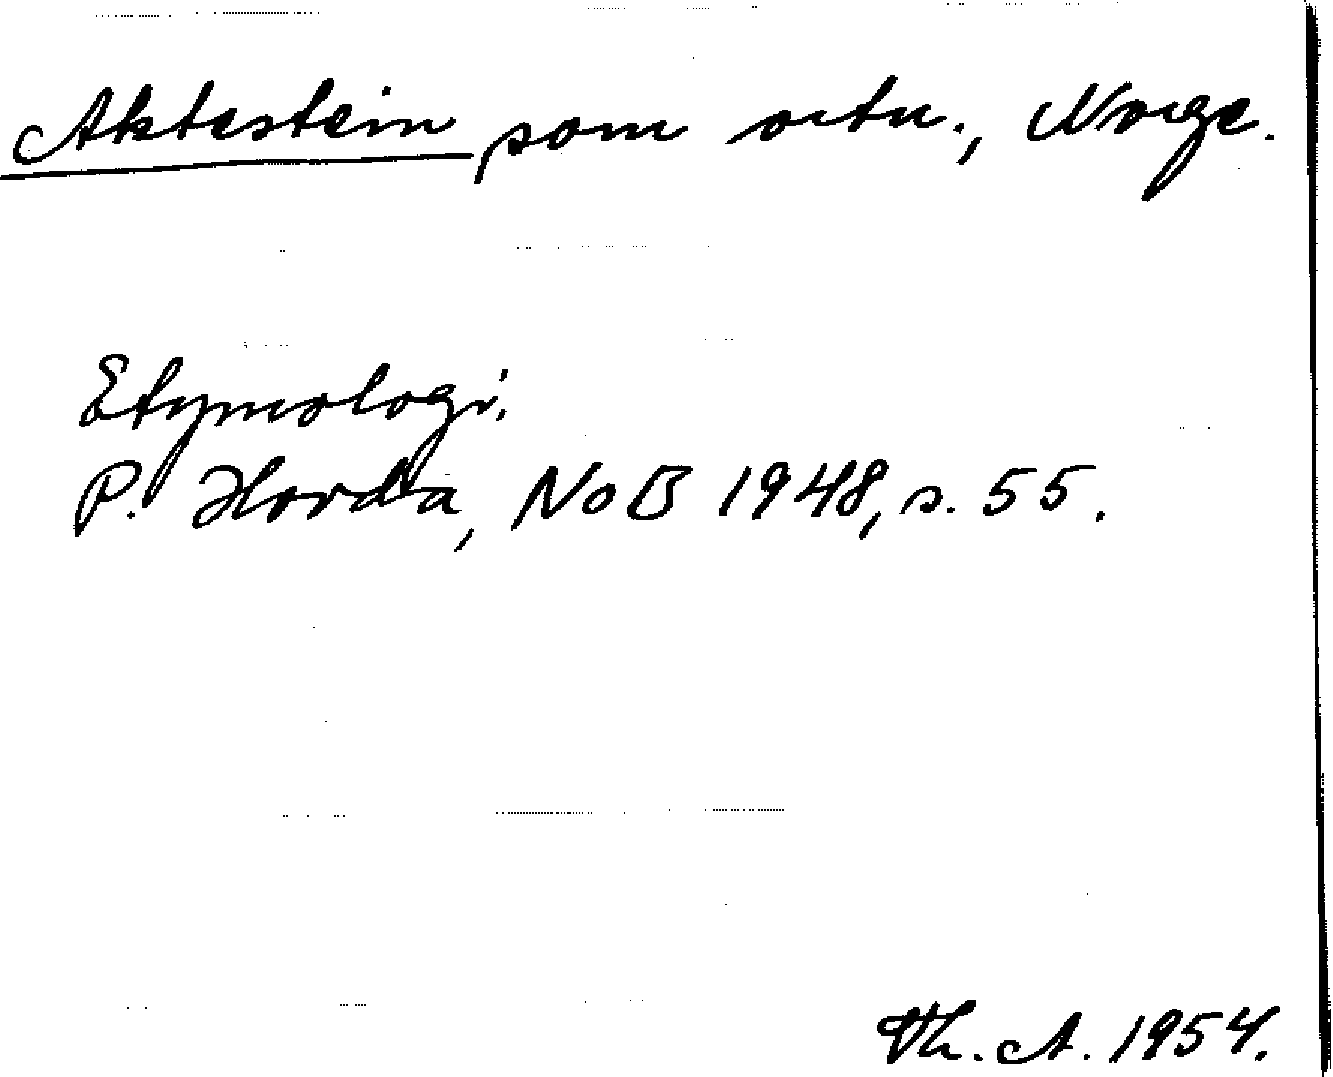 Aktestein, som ortn., Norge.
Etymologi.
P. Hovda, NoB 1948, s. 55.
Th. A. 1954.